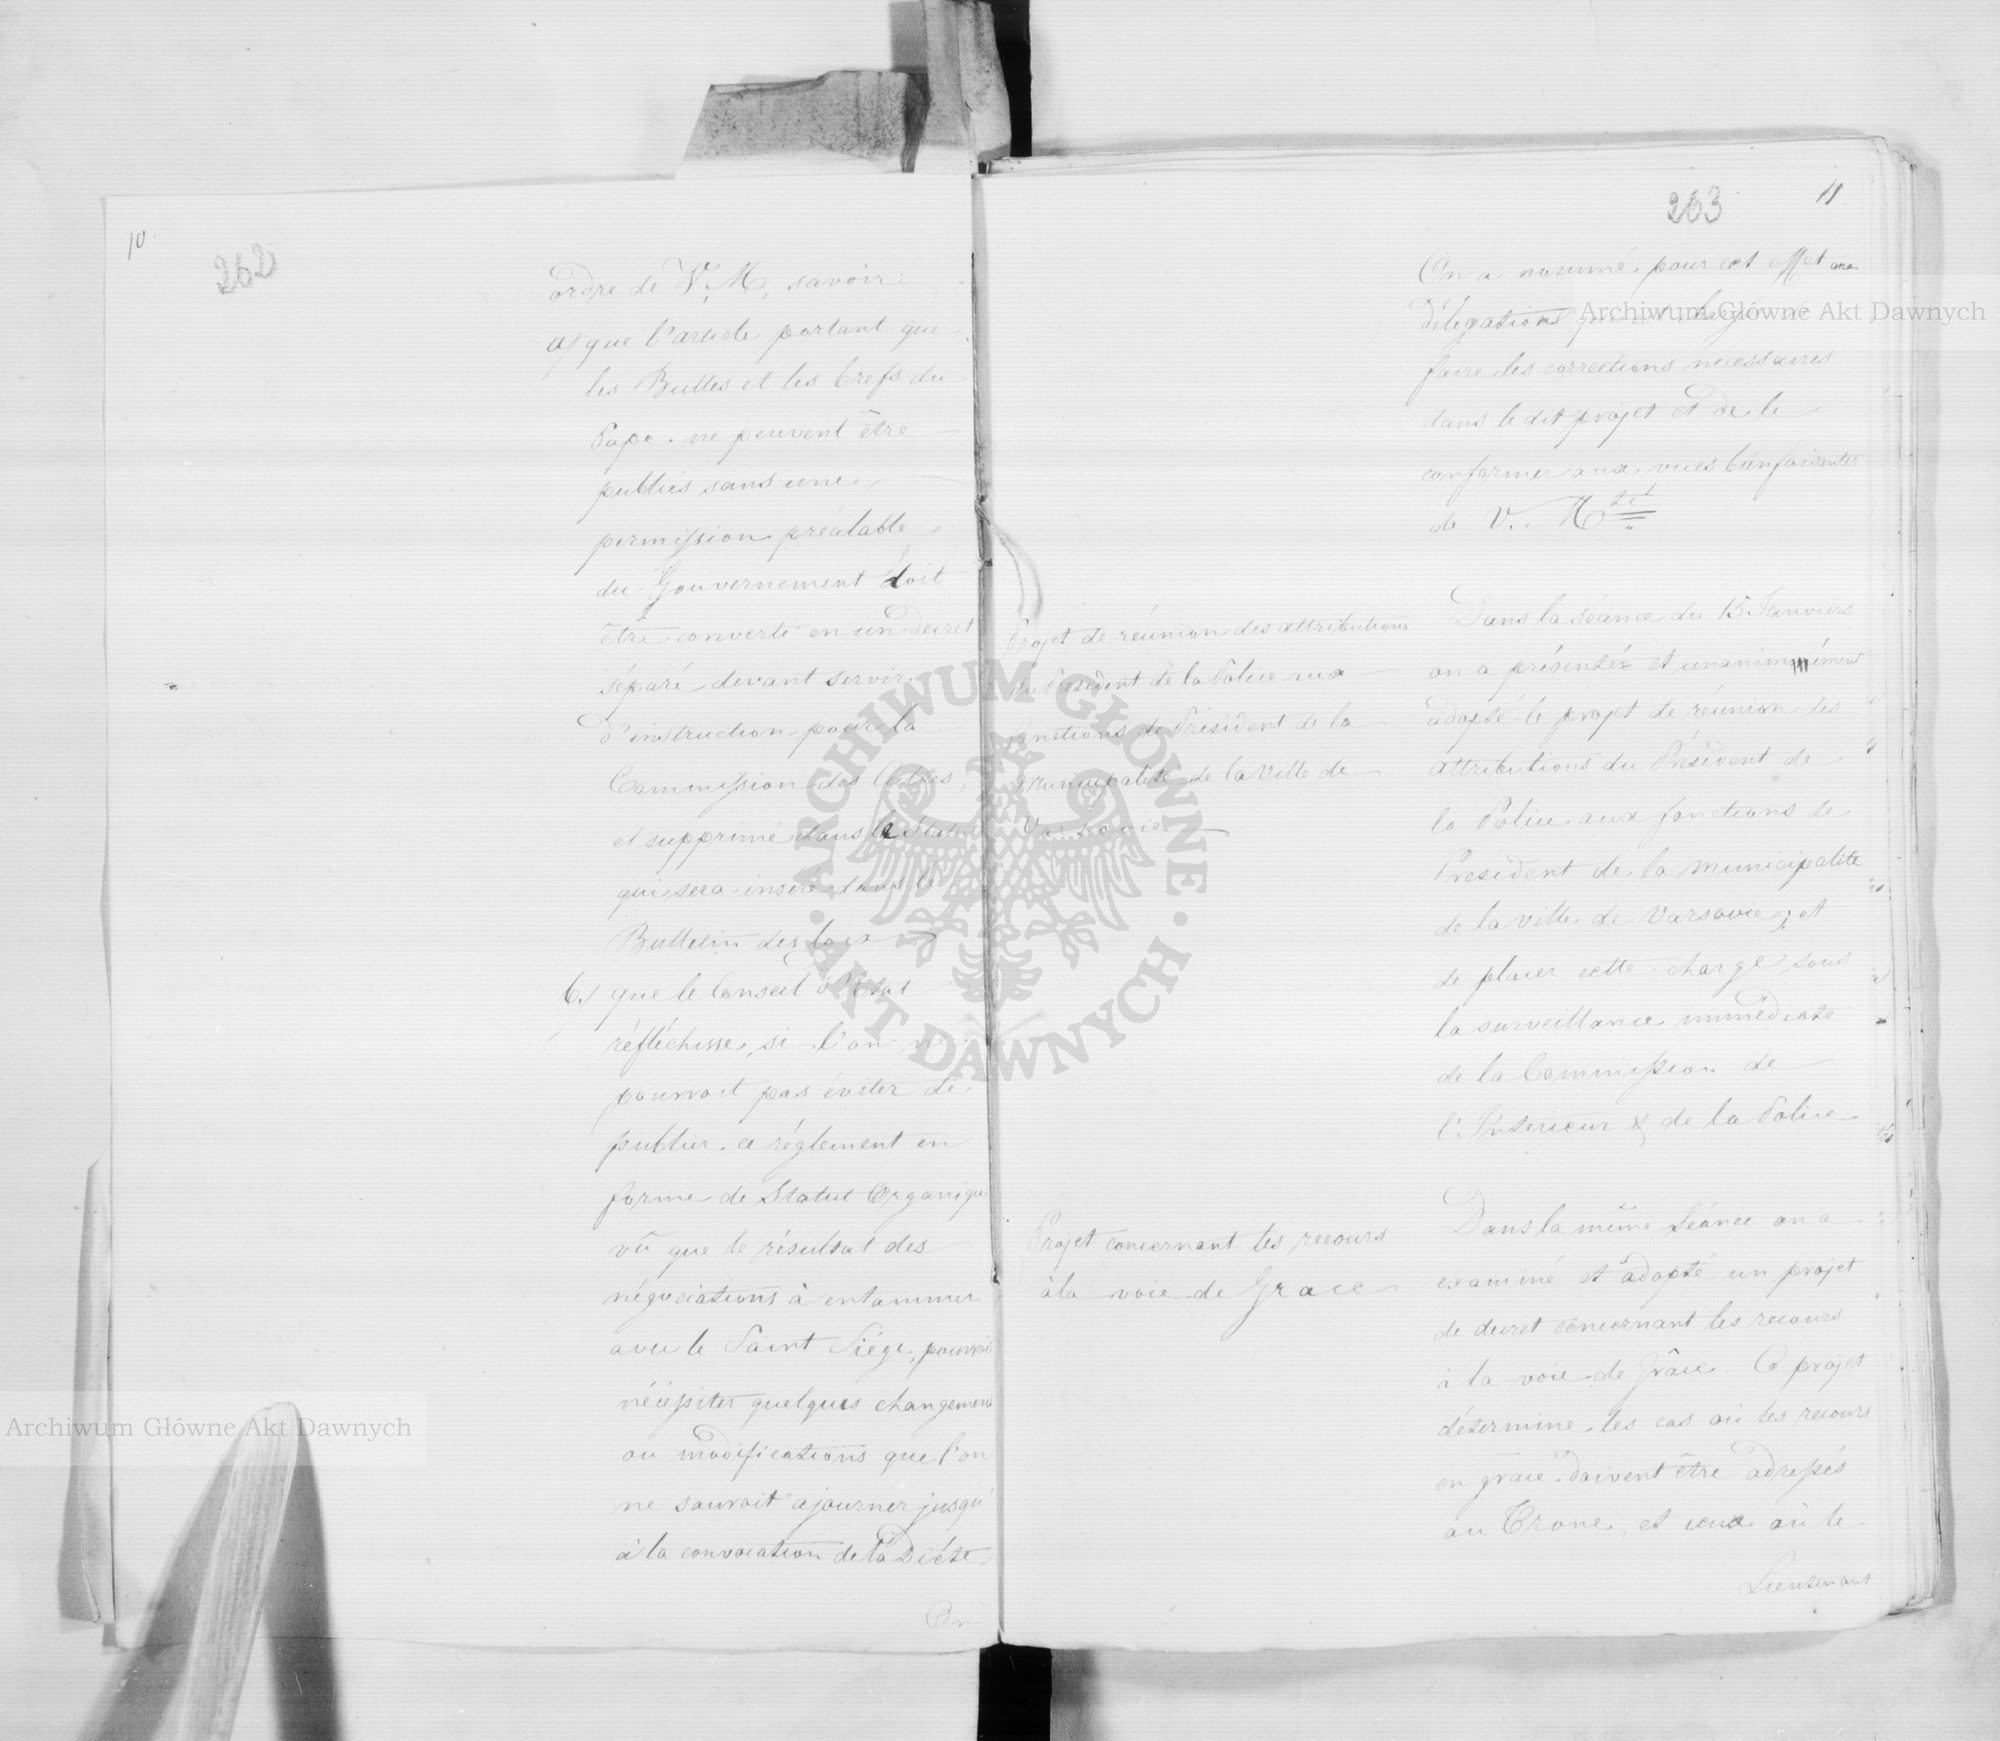 10
262
ordre de V. M. savoir:
a/ que l'article portant que
les Bulles et les brefs du
Pape ne peuvent être
publiés sans une
permission préalable
du Gouvernement doit
être converti en un decret
séparé devant servir
d'instruction pour la
Commission des Cultes,
et supprimé dans le Statut
qui sera inséré dans le
Bulletin des loix
b./ que le Conseil d'Etat
réfléchisse, si l'on ne
pourroit pas éviter de
publier ce réglement en
forme de Statut Organique
vû que le résultat des
négociations à entammer
avec le Saint Siége, pourroit
nécessiter quelques changemens
ou modifications que l'on
ne sauroit ajourner jusqu'
à la convocation de la Diéte
On
263
11
On a nommé pour cet effet une
Délégation
faire les corrections nécessaires
dans le dit projet et de le
conformer aux vues bienfaisantes
de V. M.
Projet de réunion des attributions
du President de la Police aux
fonctions de Président de la
Municipalité de la Ville de
Varsovie
Dans la séance du 15 Janvier
on a présenté et unanimément
adopté le projet de réunion des
attributions du Président de
la Police aux fonctions de
Président de la municipalité
de la ville de Varsovie; et
de placer cette charge sous
la surveillance immédiate
de la Commission de
l'Interieur & de la Police
Projet concernant les recours
à la voie de Grace
Dans la même Séance on a
examiné et adopté un projet
de decret concernant les recours
à la voie de grâce. Ce projet
détermine les cas où les recours
en grace doivent être adressés
au Trone, et ceux où le
Lieutenant
Archiwum Główne Akt Dawnych
Archiwum Główne Akt Dawnych
ARCHIWUM GŁÓWNE
AKT DAWNYCH